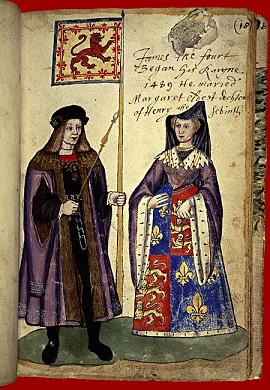 James the fourt
Began his Rayne
1489 He maried
Margaret Eldest dochter
of Henry the Sebinth